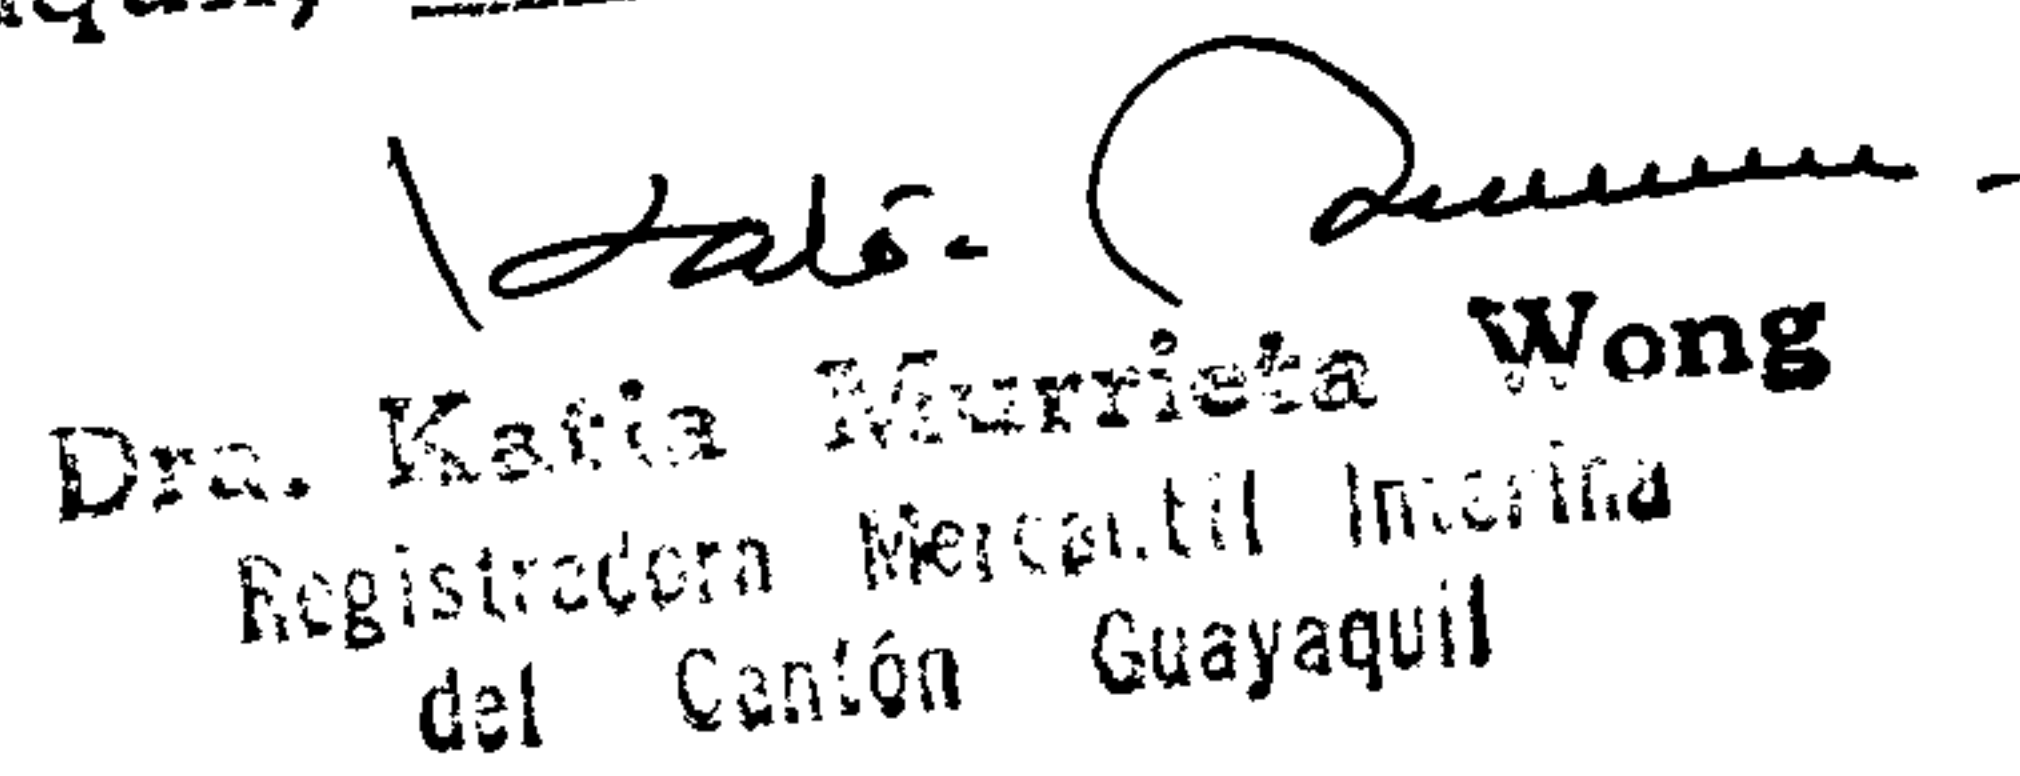 Dra. Katia Murrieta Wong
Registradora Mercantil Interina
del Cantón Guayaquil